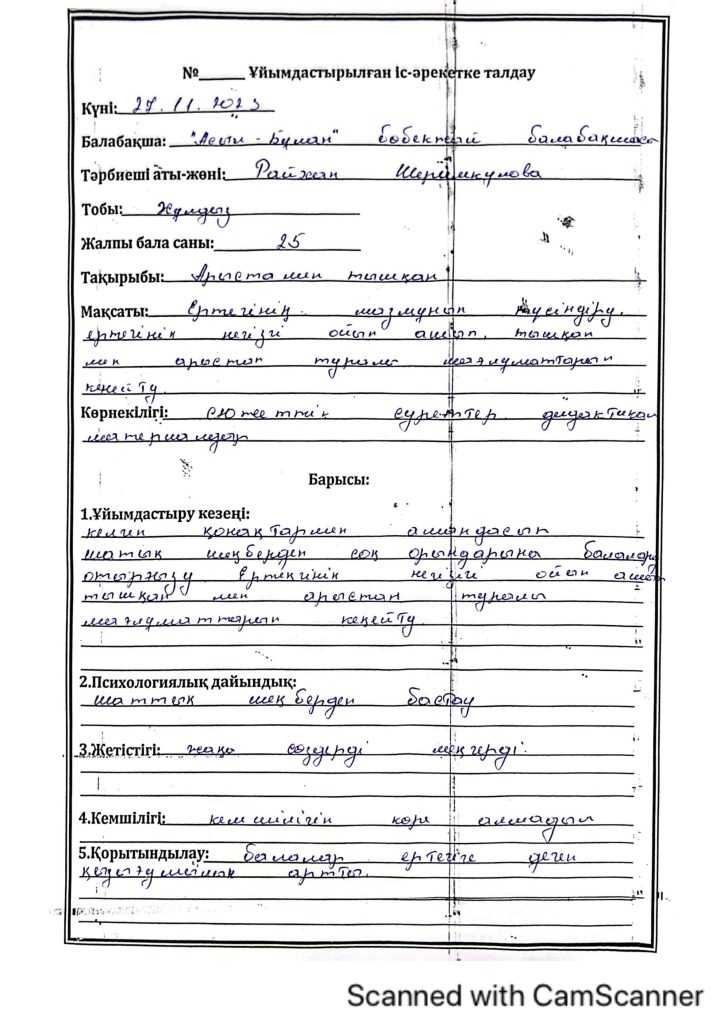 №_____ Ұйымдастырылған іс-әрекетке талдау
Күні: 27.11.2023
Балабақша: бөбекжай балабақшасы
Тәрбиеші аты-жөні: Райхан Шеримкулова
Тобы: Жұлдыз
Жалпы бала саны: 25
Тақырыбы: Арыстан мен тышқан
Мақсаты: Ертегінің мазмұнын түсіндіру.
ертегінің негізгі ойын ашып. тышқан
мен арыстан туралы мағлұматтарын
кеңейту.
Көрнекілігі: сюжеттік суреттер дидактикалық
материалдар
Барысы:
1.Ұйымдастыру кезеңі:
келген қонақтармен амандасып
шаттық шеңберден соң орындарына балаларды
отырғызу. Ертегінің негізгі ойын ашып
тышқан мен арыстан туралы
мағлұматтарын кеңейту.
2.Психологиялық дайындық:
шаттық шеңберден бастау
3.Жетістігі: жаңа сөздерді меңгерді.
4.Кемшілігі: кемшілігін көре алмадым
5.Қорытындылау: балалар ертегіге деген
қызығушылық артты.
Scanned with CamScanner